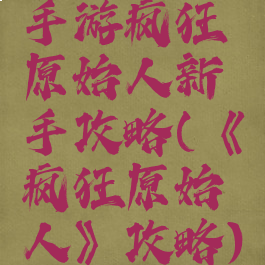 手游疯狂
原始人新
手攻略(《
疯狂原始
人》攻略)